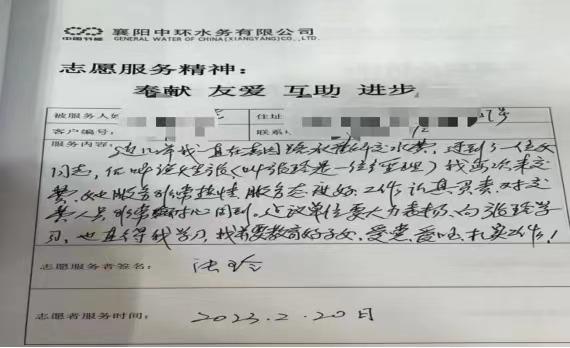 中国节能
襄阳中环水务有限公司
GENERAL WATER OF CHINA(XIANGYANG)CO.,LTD.
志愿服务精神：
奉献 友爱 互助 进步
被服务人姓 住址 号
客户编号： 联系
服务内容：这几年我一直在 水费，遇到了一位女
同志， 姓张（叫张玲是一位 经理）我每次来交
费，她服务非常热情，服务态度好，工作认真负责对交
费人员非常 耐心周到。建议单位要大力表扬，向张玲学
习，也值得我学习，我 要教育好子女，爱党爱国，扎实工作！
志愿服务者签名： 张玲
志愿者服务时间： 2023.2.20日